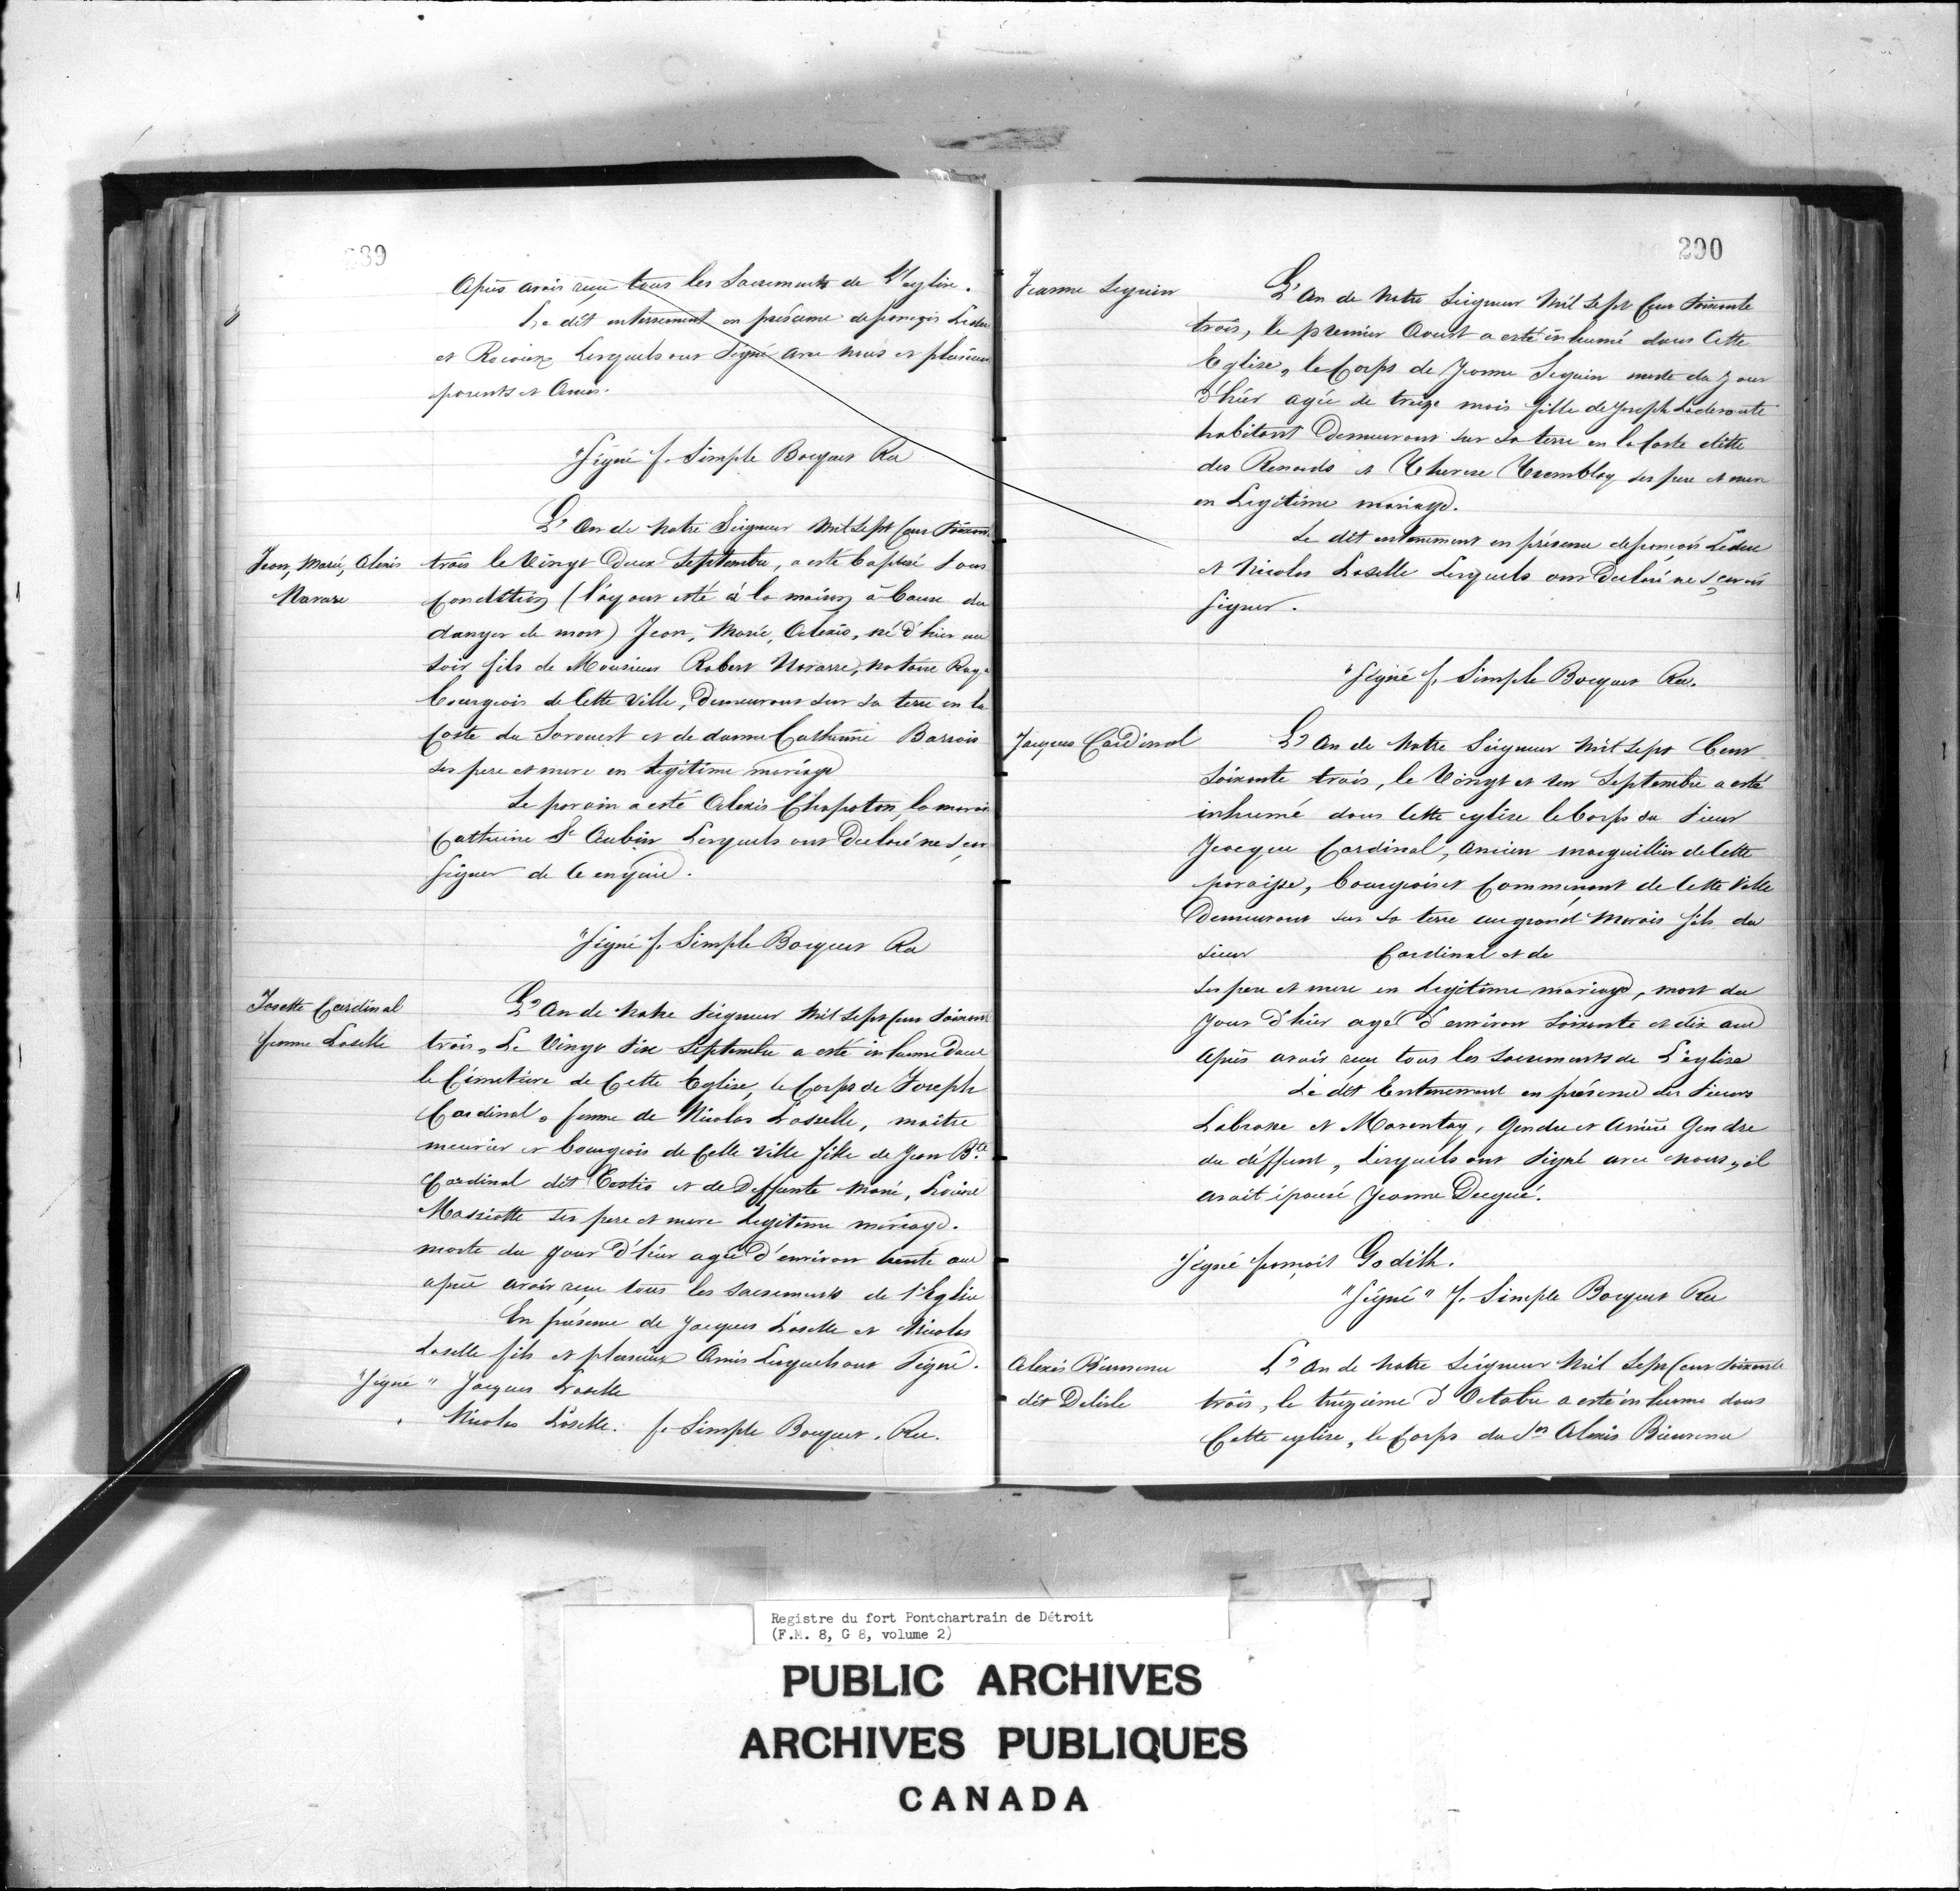 289
Après avoir reçu tous les Sacrements de L'eglise.
Le dit enterrement en présence de françois Leduc
et Lesquels ont Signé avec nous et plusieurs
parents et Amis.
"Signé f. Simple Bocquet Rec
L'An de Notre Seigneur Mil Sept Cens Soixante
Jean, Marie, Alexis
Navare
trois le Vingt Deux Septembre, a esté baptisé sous
Condition (l'ayant esté à la maison à Cause du
danger de mort) Jean, Marie, Alexis, né d'hier au
soir fils de Monsieur Robert Navarre, notaire Roya
bourgeois de Cette Ville, Demeurant sur sa terre en la
Coste du Sorouest et de damme Catherine Barrois
ses pere et mere en legitime mariage
Le parain a esté Alexis Chapoton, la marain
Catherine St Aubin Lesquels ont Declaré ne
signer de Ce enquis.
"Signé f. Simple Bocquet Rec
Josette Cardinal
femme Loselle
L'An de Notre Seigneur Mil Sept Cens Soixante
trois, Le Vingt Six Septembre a esté inhumé Dans
le Cimetiere de Cette Eglise, le Corps de Joseph
Cardinal, femme de Nicolas Lasselle, maitre
meunier et bourgeois de Cette Ville fille de Jean Bte
Cardinal dit et de Deffunte Marie, Louise
Massiotte ses pere et mere legitime mariage.
morte du jour d'hier agée d'environ trente ans
après avoir reçu tous les sacrements de l'Eglise
En présence de Jacques Loselle et Nicolas
Loselle fils et plusieurs Amis Lesquels ont Signé.
"Signé" Jacques Loselle
" Nicolas Loselle. f. Simple Bocquet, Rec.
290
Jeanne Seguin
L'An de Notre Seigneur Mil Sept Cens Soixante
trois, le premier Aoust a esté inhumé dans Cette
Eglise, le Corps de Jeanne Seguin morte du Jour
d'hier agée de treize mois fille de Joseph Laderoute
habitant Demeurant sur sa terre en la Coste ditte
des Renards et Therese Tremblay ses pere et mere
en Legitime mariage.
Le dit enterrement en présence de françois Leduc
et Nicolas Loselle Lesquels ont Declaré ne sçavoir
Signer.
"Signé f. Simple Bocquet Rec.
Jacques Cardinal
L'An de Notre Seigneur Mil Sept Cens
Soixante trois, le Vingt et un Septembre a esté
inhumé dans Cette eglise le Corps du Sieur
Jacque Cardinal, Ancien marguillier de Cette
paroisse, bourgeois et Commerçant de Cette Ville
Demeurant sur sa terre au grand Marais fils du
Sieur Cardinal et de
ses pere et mere en legitime mariage, mort du
Jour d'hier agé d'environ Soixante et dix ans
Après avoir reçu tous les sacrements de L'eglise
Le dit Enterrement en présence des Sieurs
Labrosse et Marentay, Gendre et Arriere Gendre
du déffunt, Lesquels ont Signé avec nous, il
avait épousé Jeanne Dugué.
"Signé françois Godith.
"Signé" f. Simple Bocquet Rec
Alexis Bienvenu
dit Delisle
L'An de Notre Seigneur Mil Sept Cens Soixante
trois, le treizième d'Octobre a esté inhumé dans
Cette eglise, le Corps du Sr Alexis Bienvenu
Registre du fort Pontchartrain de Détroit
(F.M. 8, G 8, volume 2)
PUBLIC ARCHIVES
ARCHIVES PUBLIQUES
CANADA